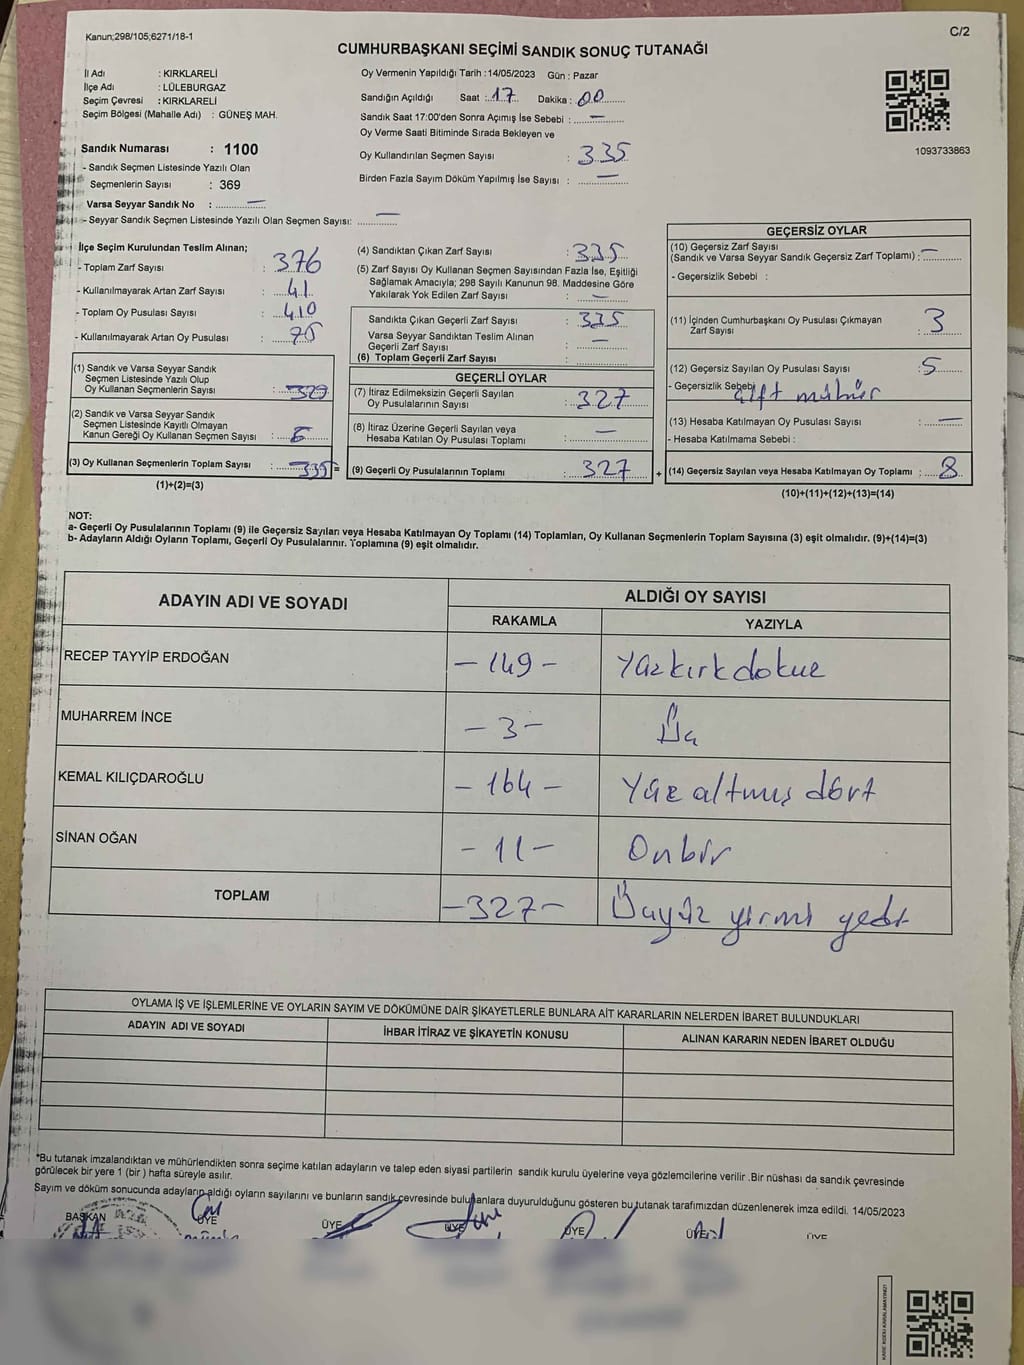 Kanun;298/105;6271/18-1
C/2
CUMHURBAŞKANI SEÇİMİ SANDIK SONUÇ TUTANAĞI
İl Adı : KIRKLARELİ
İlçe Adı : LÜLEBURGAZ
Seçim Çevresi : KIRKLARELİ
Seçim Bölgesi (Mahalle Adı) : GÜNEŞ MAH.
Sandık Numarası : 1100
- Sandık Seçmen Listesinde Yazılı Olan
Seçmenlerin Sayısı : 369
Varsa Seyyar Sandık No : —
- Seyyar Sandık Seçmen Listesinde Yazılı Olan Seçmen Sayısı: —
Oy Vermenin Yapıldığı Tarih : 14/05/2023 Gün : Pazar
Sandığın Açıldığı Saat : 17 Dakika : 00
Sandık Saat 17:00'den Sonra Açımış İse Sebebi : —
Oy Verme Saati Bitiminde Sırada Bekleyen ve
Oy Kullandırılan Seçmen Sayısı : 335
Birden Fazla Sayım Döküm Yapılmış İse Sayısı : —
1093733863
İlçe Seçim Kurulundan Teslim Alınan;
- Toplam Zarf Sayısı : 376
- Kullanılmayarak Artan Zarf Sayısı : 41
- Toplam Oy Pusulası Sayısı : 410
- Kullanılmayarak Artan Oy Pusulası : 75
(1) Sandık ve Varsa Seyyar Sandık
Seçmen Listesinde Yazılı Olup
Oy Kullanan Seçmenlerin Sayısı : 329
(2) Sandık ve Varsa Seyyar Sandık
Seçmen Listesinde Kayıtlı Olmayan
Kanun Gereği Oy Kullanan Seçmen Sayısı : 6
(3) Oy Kullanan Seçmenlerin Toplam Sayısı : 335 =
(1)+(2)=(3)
(4) Sandıktan Çıkan Zarf Sayısı : 335
(5) Zarf Sayısı Oy Kullanan Seçmen Sayısından Fazla İse, Eşitliği
Sağlamak Amacıyla; 298 Sayılı Kanunun 98. Maddesine Göre
Yakılarak Yok Edilen Zarf Sayısı : —
Sandıkta Çıkan Geçerli Zarf Sayısı : 335
Varsa Seyyar Sandıktan Teslim Alınan
Geçerli Zarf Sayısı : —
(6) Toplam Geçerli Zarf Sayısı :
GEÇERLİ OYLAR
(7) İtiraz Edilmeksizin Geçerli Sayılan
Oy Pusulalarının Sayısı : 327
(8) İtiraz Üzerine Geçerli Sayılan veya
Hesaba Katılan Oy Pusulası Toplamı : —
(9) Geçerli Oy Pusulalarının Toplamı : 327 +
GEÇERSİZ OYLAR
(10) Geçersiz Zarf Sayısı
(Sandık ve Varsa Seyyar Sandık Geçersiz Zarf Toplamı) : —
- Geçersizlik Sebebi :
(11) İçinden Cumhurbaşkanı Oy Pusulası Çıkmayan
Zarf Sayısı : 3
(12) Geçersiz Sayılan Oy Pusulası Sayısı : 5
- Geçersizlik Sebebi çift mühür
(13) Hesaba Katılmayan Oy Pusulası Sayısı : —
- Hesaba Katılmama Sebebi :
(14) Geçersiz Sayılan veya Hesaba Katılmayan Oy Toplamı : 8
(10)+(11)+(12)+(13)=(14)
NOT:
a- Geçerli Oy Pusulalarının Toplamı (9) ile Geçersiz Sayılan veya Hesaba Katılmayan Oy Toplamı (14) Toplamları, Oy Kullanan Seçmenlerin Toplam Sayısına (3) eşit olmalıdır. (9)+(14)=(3)
b- Adayların Aldığı Oyların Toplamı, Geçerli Oy Pusulalarınır. Toplamına (9) eşit olmalıdır.
ADAYIN ADI VE SOYADI
ALDIĞI OY SAYISI
RAKAMLA YAZIYLA
RECEP TAYYİP ERDOĞAN – 149 – Yüzkırkdokuz
MUHARREM İNCE – 3 – Üç
KEMAL KILIÇDAROĞLU – 164 – Yüz altmış dört
SİNAN OĞAN – 11 – Onbir
TOPLAM – 327 – Üçyüz yirmi yedi
OYLAMA İŞ VE İŞLEMLERİNE VE OYLARIN SAYIM VE DÖKÜMÜNE DAİR ŞİKAYETLERLE BUNLARA AİT KARARLARIN NELERDEN İBARET BULUNDUKLARI
ADAYIN ADI VE SOYADI İHBAR İTİRAZ VE ŞİKAYETİN KONUSU ALINAN KARARIN NEDEN İBARET OLDUĞU
*Bu tutanak imzalandıktan ve mühürlendikten sonra seçime katılan adayların ve talep eden siyasi partilerin sandık kurulu üyelerine veya gözlemcilerine verilir .Bir nüshası da sandık çevresinde
görülecek bir yere 1 (bir ) hafta süreyle asılır.
Sayım ve döküm sonucunda adayların aldığı oyların sayılarını ve bunların sandık çevresinde bulunanlara duyurulduğunu gösteren bu tutanak tarafımızdan düzenlenerek imza edildi. 14/05/2023
BAŞKAN ÜYE ÜYE ÜYE ÜYE ÜYE ÜYE